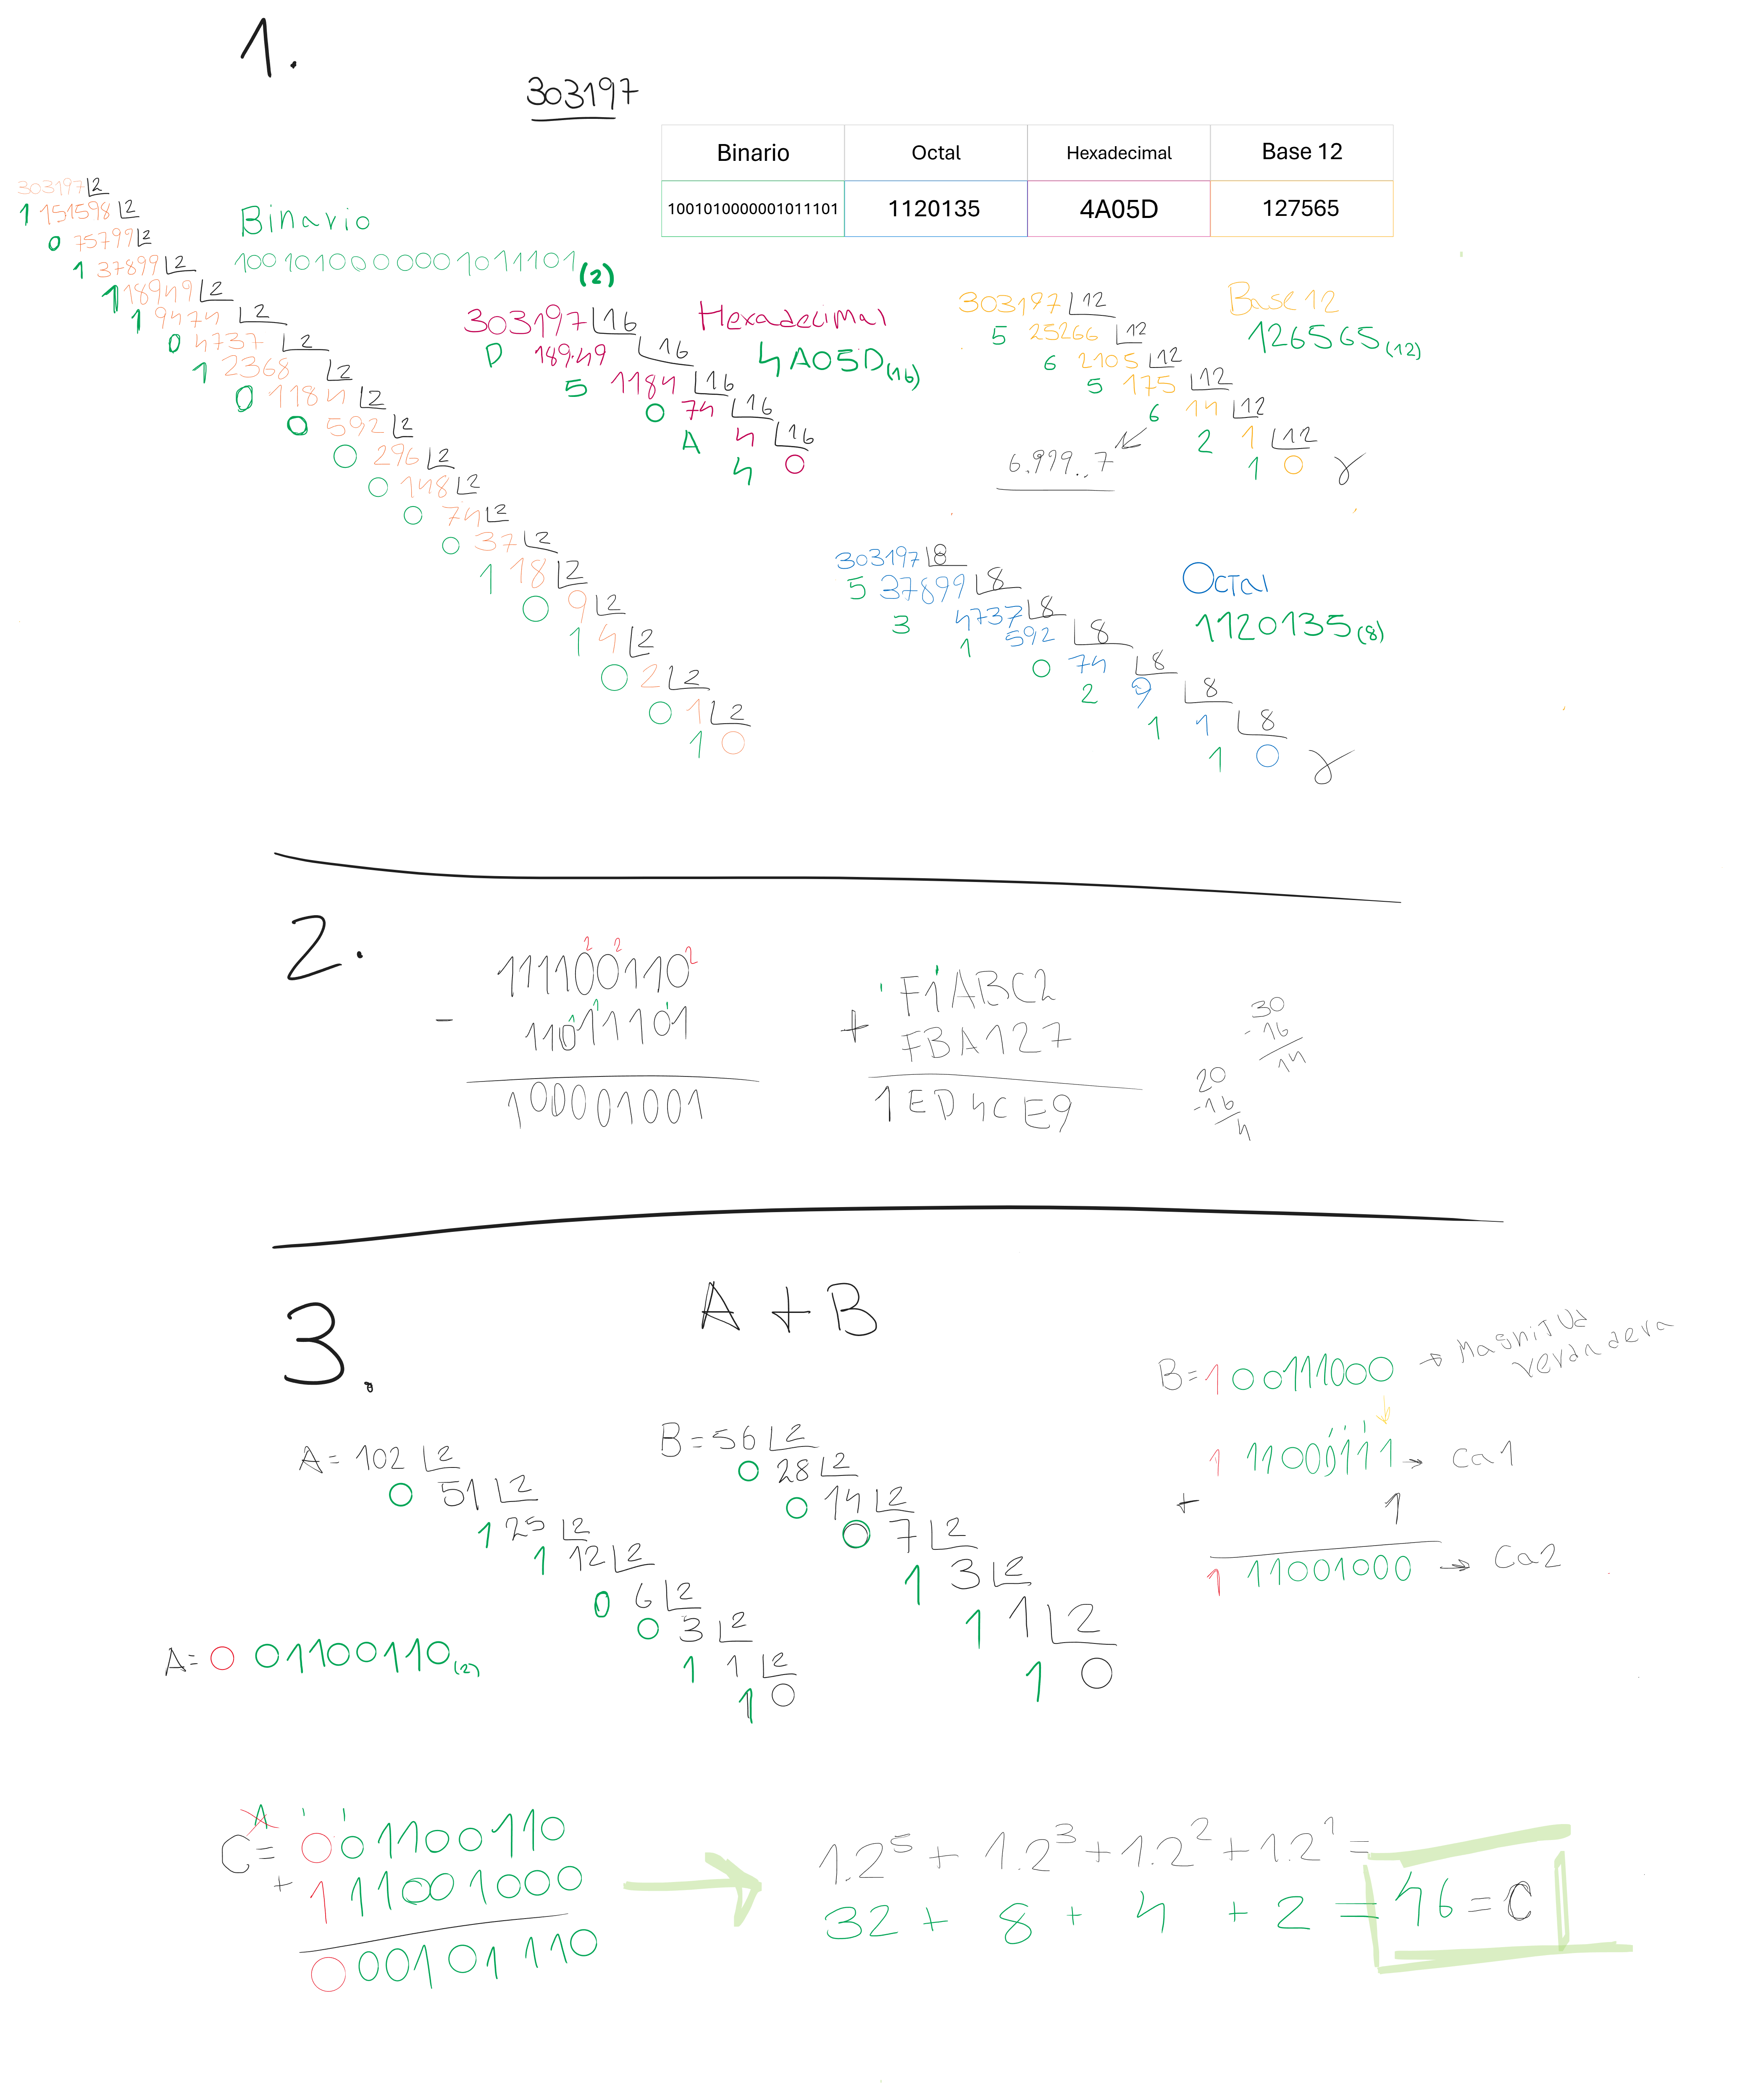 1.
303197
Binario Octal Hexadecimal Base 12
1001010000001011101 1120135 4A05D 127565
303197 2
1 151598 2
0 75799 2
1 37899 2
1 18949 2
1 9474 2
0 4737 2
1 2368 2
0 1184 2
0 592 2
0 296 2
0 148 2
0 74 2
0 37 2
1 18 2
0 9 2
1 4 2
0 2 2
0 1 2
1 0
Binario
1001010000001011101(2)
303197 16
D 18949 16
5 1184 16
0 74 16
A 4 16
4 0
Hexadecimal
4A05D(16)
303197 12
5 25266 12
6 2105 12
5 175 12
6 14 12
2 1 12
1 0
6.999..7
Base 12
126565(12)
303197 8
5 37899 8
3 4737 8
1 592 8
0 74 8
2 9 8
1 1 8
1 0
Octal
1120135(8)
2.
2 2 2
111100110
- 11011101
100001001
1 1
F1ABC2
+ FBA127
1ED4CE9
30
-16
14
20
-16
4
3.
A + B
A= 102 2
0 51 2
1 25 2
1 12 2
0 6 2
0 3 2
1 1 2
1 0
A= 0 01100110(2)
B=56 2
0 28 2
0 14 2
0 7 2
1 3 2
1 1 2
1 0
B=1 00111000 → Magnitud verdadera
1 11000111 → Ca1
+ 1
1 11001000 → Ca2
C= 0 01100110
+ 1 11001000
0 00101110
1.2⁵ + 1.2³ + 1.2² + 1.2¹ =
32 + 8 + 4 + 2 = 46 = C